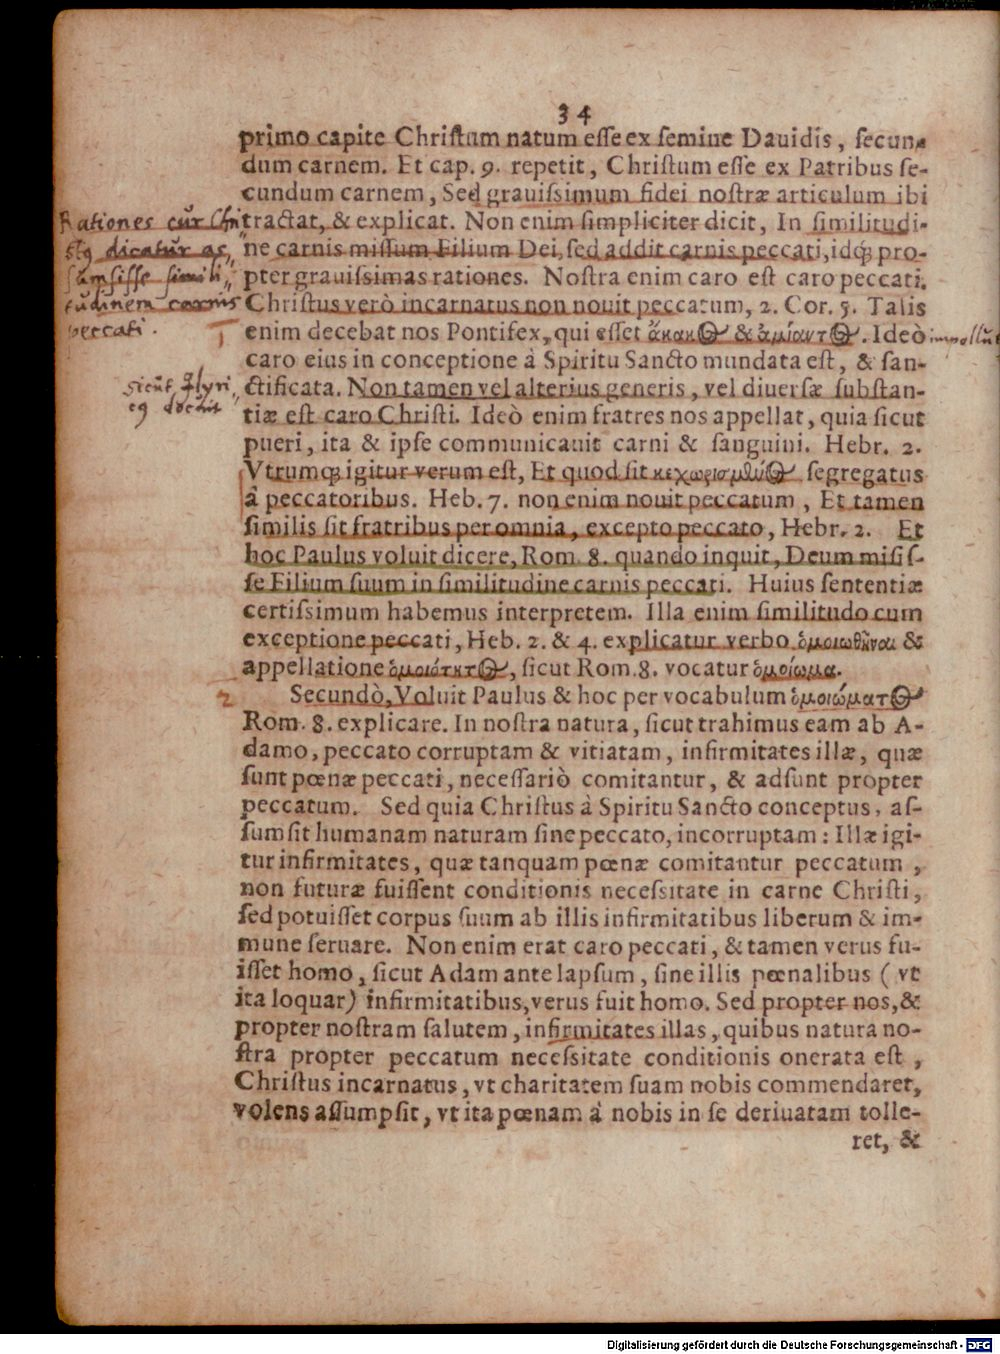 34
primo capite Christum natum esse ex semine Dauidis, secun-
dum carnem. Et cap. 9. repetit, Christum esse ex Patribus se-
cundum carnem, Sed grauissimum fidei nostræ articulum ibi
tractat, & explicat. Non enim simpliciter dicit, In similitudi-
ne carnis missum Filium Dei, sed addit carnis peccati, idq́; pro-
pter grauissimas rationes. Nostra enim caro est caro peccati.
Christus verò incarnatus non nouit peccatum, 2. Cor. 5. Talis
enim decebat nos Pontifex, qui esset ἄκακος & ἀμίαντος. Ideò
caro eius in conceptione à Spiritu Sancto mundata est, & san-
ctificata. Non tamen vel alterius generis, vel diuersæ substan-
tiæ est caro Christi. Ideò enim fratres nos appellat, quia sicut
pueri, ita & ipse communicauit carni & sanguini. Hebr. 2.
Vtrumq; igitur verum est, Et quod sit κεχωρισμένος segregatus
à peccatoribus. Heb. 7. non enim nouit peccatum, Et tamen
similis sit fratribus per omnia, excepto peccato, Hebr. 2. Et
hoc Paulus voluit dicere, Rom. 8. quando inquit, Deum misis-
se Filium suum in similitudine carnis peccati. Huius sententiæ
certissimum habemus interpretem. Illa enim similitudo cum
exceptione peccati, Heb. 2. & 4. explicatur verbo ὁμοιωθῆναι &
appellatione ὁμοιότητος, sicut Rom. 8. vocatur ὁμοίωμα.
Secundò, Voluit Paulus & hoc per vocabulum ὁμοιώματος
Rom. 8. explicare. In nostra natura, sicut trahimus eam ab A-
damo, peccato corruptam & vitiatam, infirmitates illæ, quæ
sunt pœnæ peccati, necessariò comitantur, & adsunt propter
peccatum. Sed quia Christus à Spiritu Sancto conceptus, as-
sumsit humanam naturam sine peccato, incorruptam: Illæ igi-
tur infirmitates, quæ tanquam pœnæ comitantur peccatum,
non futuræ fuissent conditionis necessitate in carne Christi,
sed potuisset corpus suum ab illis infirmitatibus liberum & im-
mune seruare. Non enim erat caro peccati, & tamen verus fu-
isset homo, sicut Adam ante lapsum, sine illis pœnalibus (vt
ita loquar) infirmitatibus, verus fuit homo. Sed propter nos, &
propter nostram salutem, infirmitates illas, quibus natura no-
stra propter peccatum necessitate conditionis onerata est,
Christus incarnatus, vt charitatem suam nobis commendaret,
volens assumpsit, vt ita pœnam à nobis in se deriuatam tolle-
ret, &
Rationes cur Chri
stus dicatur as
sumpsisse simili
tudinem carnis
peccati.
1
sicut
docuit
2
Digitalisierung gefördert durch die Deutsche Forschungsgemeinschaft - DFG